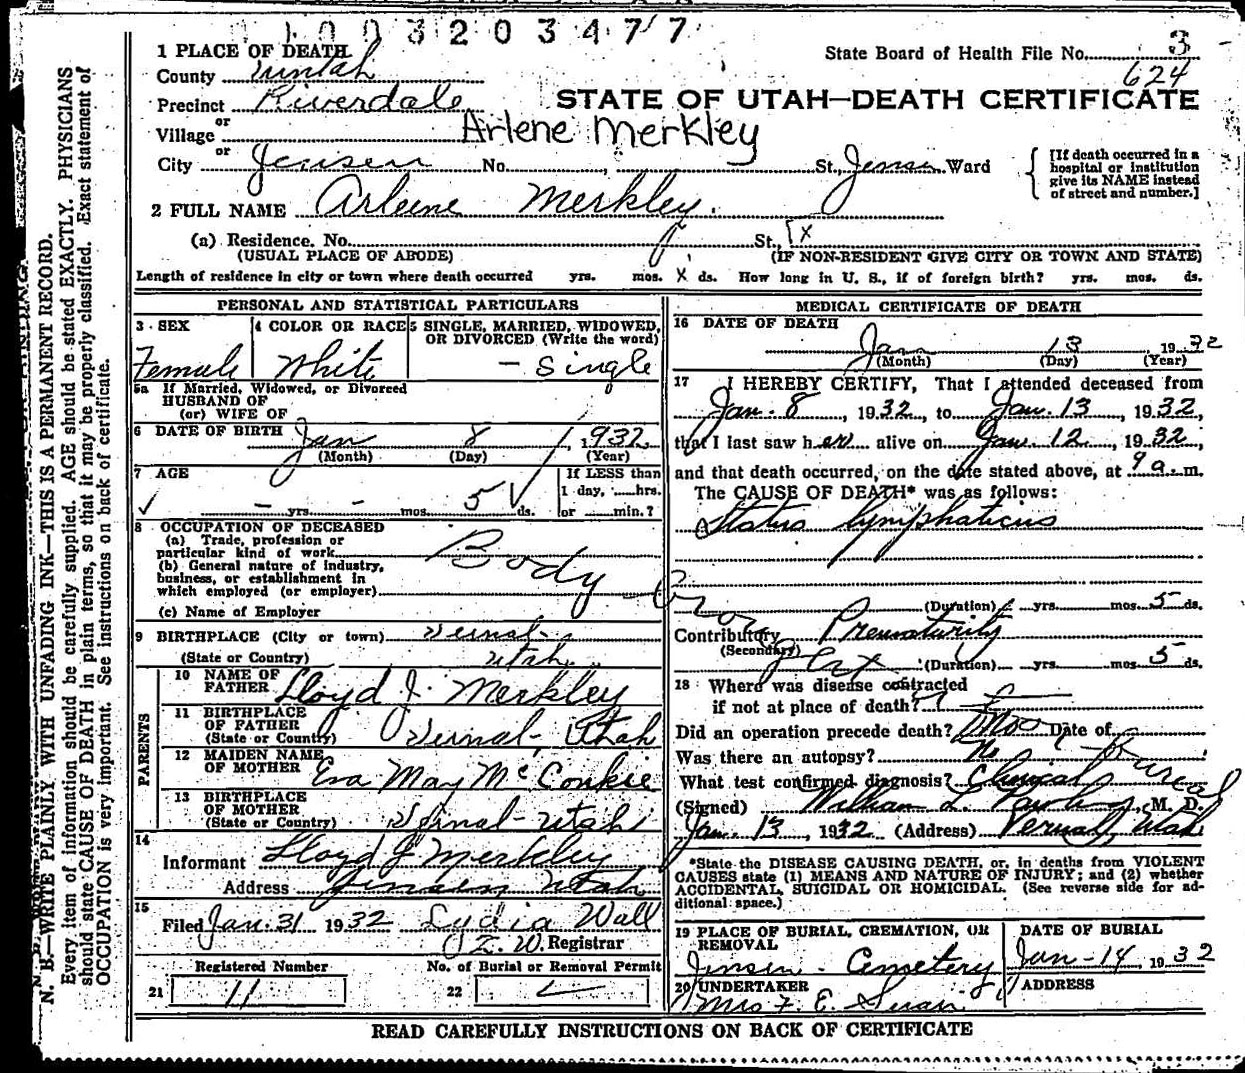 1003203477
1 PLACE OF DEATH State Board of Health File No. 3
County Uintah 624
Precinct Riverdale STATE OF UTAH—DEATH CERTIFICATE
or
Village Arlene Merkley
or
City Jensen No. St., Jensen Ward
[If death occurred in a hospital or institution give its NAME instead of street and number.]
2 FULL NAME Arleene Merkley.
(a) Residence. No. St., x
(USUAL PLACE OF ABODE) (IF NON-RESIDENT GIVE CITY OR TOWN AND STATE)
Length of residence in city or town where death occurred yrs. mos. x ds. How long in U. S., if of foreign birth? yrs. mos. ds.
PERSONAL AND STATISTICAL PARTICULARS
3 SEX 4 COLOR OR RACE 5 SINGLE, MARRIED, WIDOWED,
OR DIVORCED (Write the word)
Female White – Single
5a If Married, Widowed, or Divorced
HUSBAND OF
(or) WIFE OF
6 DATE OF BIRTH Jan 8, 1932
(Month) (Day) (Year)
7 AGE If LESS than
1 day, hrs.
– yrs. – mos. 5 ds. or min.?
8 OCCUPATION OF DECEASED
(a) Trade, profession or
particular kind of work
(b) General nature of industry,
business, or establishment in
which employed (or employer)
Body
(c) Name of Employer
9 BIRTHPLACE (City or town) Vernal-
(State or Country) Utah
PARENTS
10 NAME OF
FATHER Lloyd J. Merkley
11 BIRTHPLACE
OF FATHER
(State or Country) Vernal-, Utah
12 MAIDEN NAME
OF MOTHER Eva May McConkie
13 BIRTHPLACE
OF MOTHER
(State or Country) Vernal-Utah
14
Informant Lloyd J Merkley
Address Jensen Utah
15
Filed Jan. 31 1932 Lydia Wall
Registrar
Registered Number No. of Burial or Removal Permit
21 11 22
MEDICAL CERTIFICATE OF DEATH
16 DATE OF DEATH
Jan 13 1932
(Month) (Day) (Year)
17 I HEREBY CERTIFY, That I attended deceased from
Jan. 8, 1932, to Jan. 13, 1932,
that I last saw her alive on Jan. 12, 1932,
and that death occurred, on the date stated above, at 9 a. m.
The CAUSE OF DEATH* was as follows:
Status lymphaticus
(Duration) yrs. mos. 5 ds.
Contributory Prematurity
(Secondary)
(Duration) yrs. mos. 5 ds.
18 Where was disease contracted
if not at place of death?
Did an operation precede death? No Date of
Was there an autopsy? No
What test confirmed diagnosis? Clinical
(Signed) William L. M. D.
Jan. 13, 1932 (Address) Vernal, Utah
*State the DISEASE CAUSING DEATH, or, in deaths from VIOLENT
CAUSES state (1) MEANS AND NATURE OF INJURY; and (2) whether
ACCIDENTAL, SUICIDAL OR HOMICIDAL. (See reverse side for ad-
ditional space.)
19 PLACE OF BURIAL, CREMATION, OR
REMOVAL DATE OF BURIAL
Jensen - Cemetery Jan-14, 1932
20 UNDERTAKER ADDRESS
Mrs F. E. Swain
READ CAREFULLY INSTRUCTIONS ON BACK OF CERTIFICATE
N. B.—WRITE PLAINLY WITH UNFADING INK—THIS IS A PERMANENT RECORD.
Every item of information should be carefully supplied. AGE should be stated EXACTLY. PHYSICIANS
should state CAUSE OF DEATH in plain terms, so that it may be properly classified. Exact statement of
OCCUPATION is very important. See instructions on back of certificate.